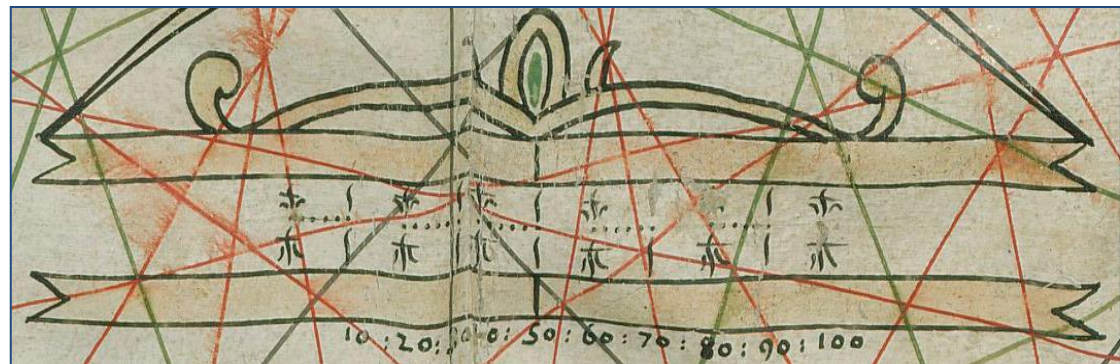 10 : 20 : 50 : 60 : 70 : 80 : 90 : 100